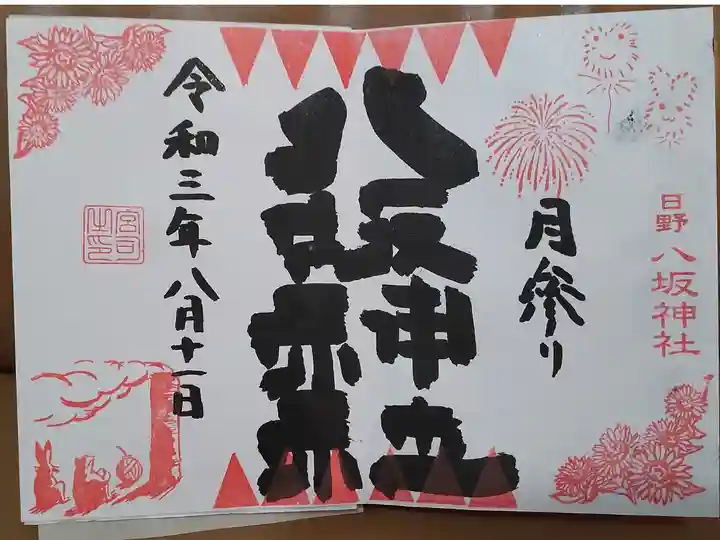 日野八坂神社
月参り
八坂神社
令和三年八月十一日
宮司之印